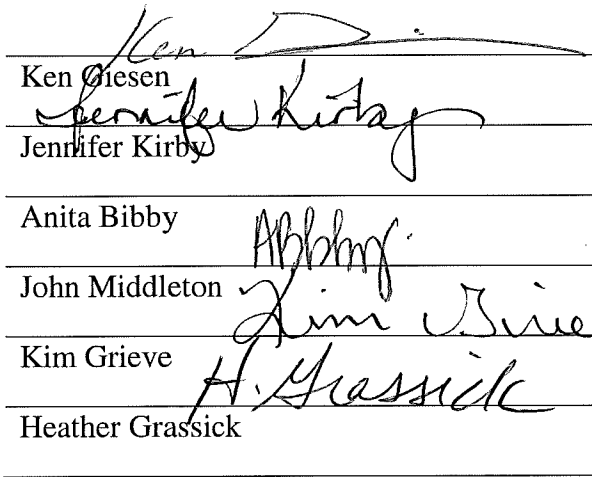 Ken
Ken Giesen
Jennifer Kirby
Jennifer Kirby
Anita Bibby
ABibby
John Middleton
Kim Grieve
Kim Grieve
H. Grassick
Heather Grassick